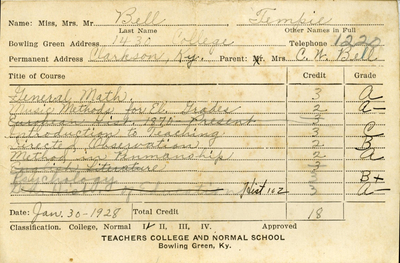 Name: Miss, Mrs. Mr Bell Tempie
Last Name Other Names in Full
Bowling Green Address 1430 College Telephone 1220
Permanent Address Clarkson, Ky. Parent: Mr. Mrs. C. W. Bell
Title of Course Credit Grade
General Math 3 A
Music Methods for El. Grades 2 A-
European Hist. 1870-Present 3
Introduction to Teaching 3 C
Directed Observation 2 B
Method in Penmanship 2 A
English Literature 3
Psychology 3 B+
History of Education Hist 102 3 A-
Date: Jan. 30-1928 Total Credit 18
Classification. College, Normal I, II, III, IV. Approved
TEACHERS COLLEGE AND NORMAL SCHOOL
Bowling Green, Ky.